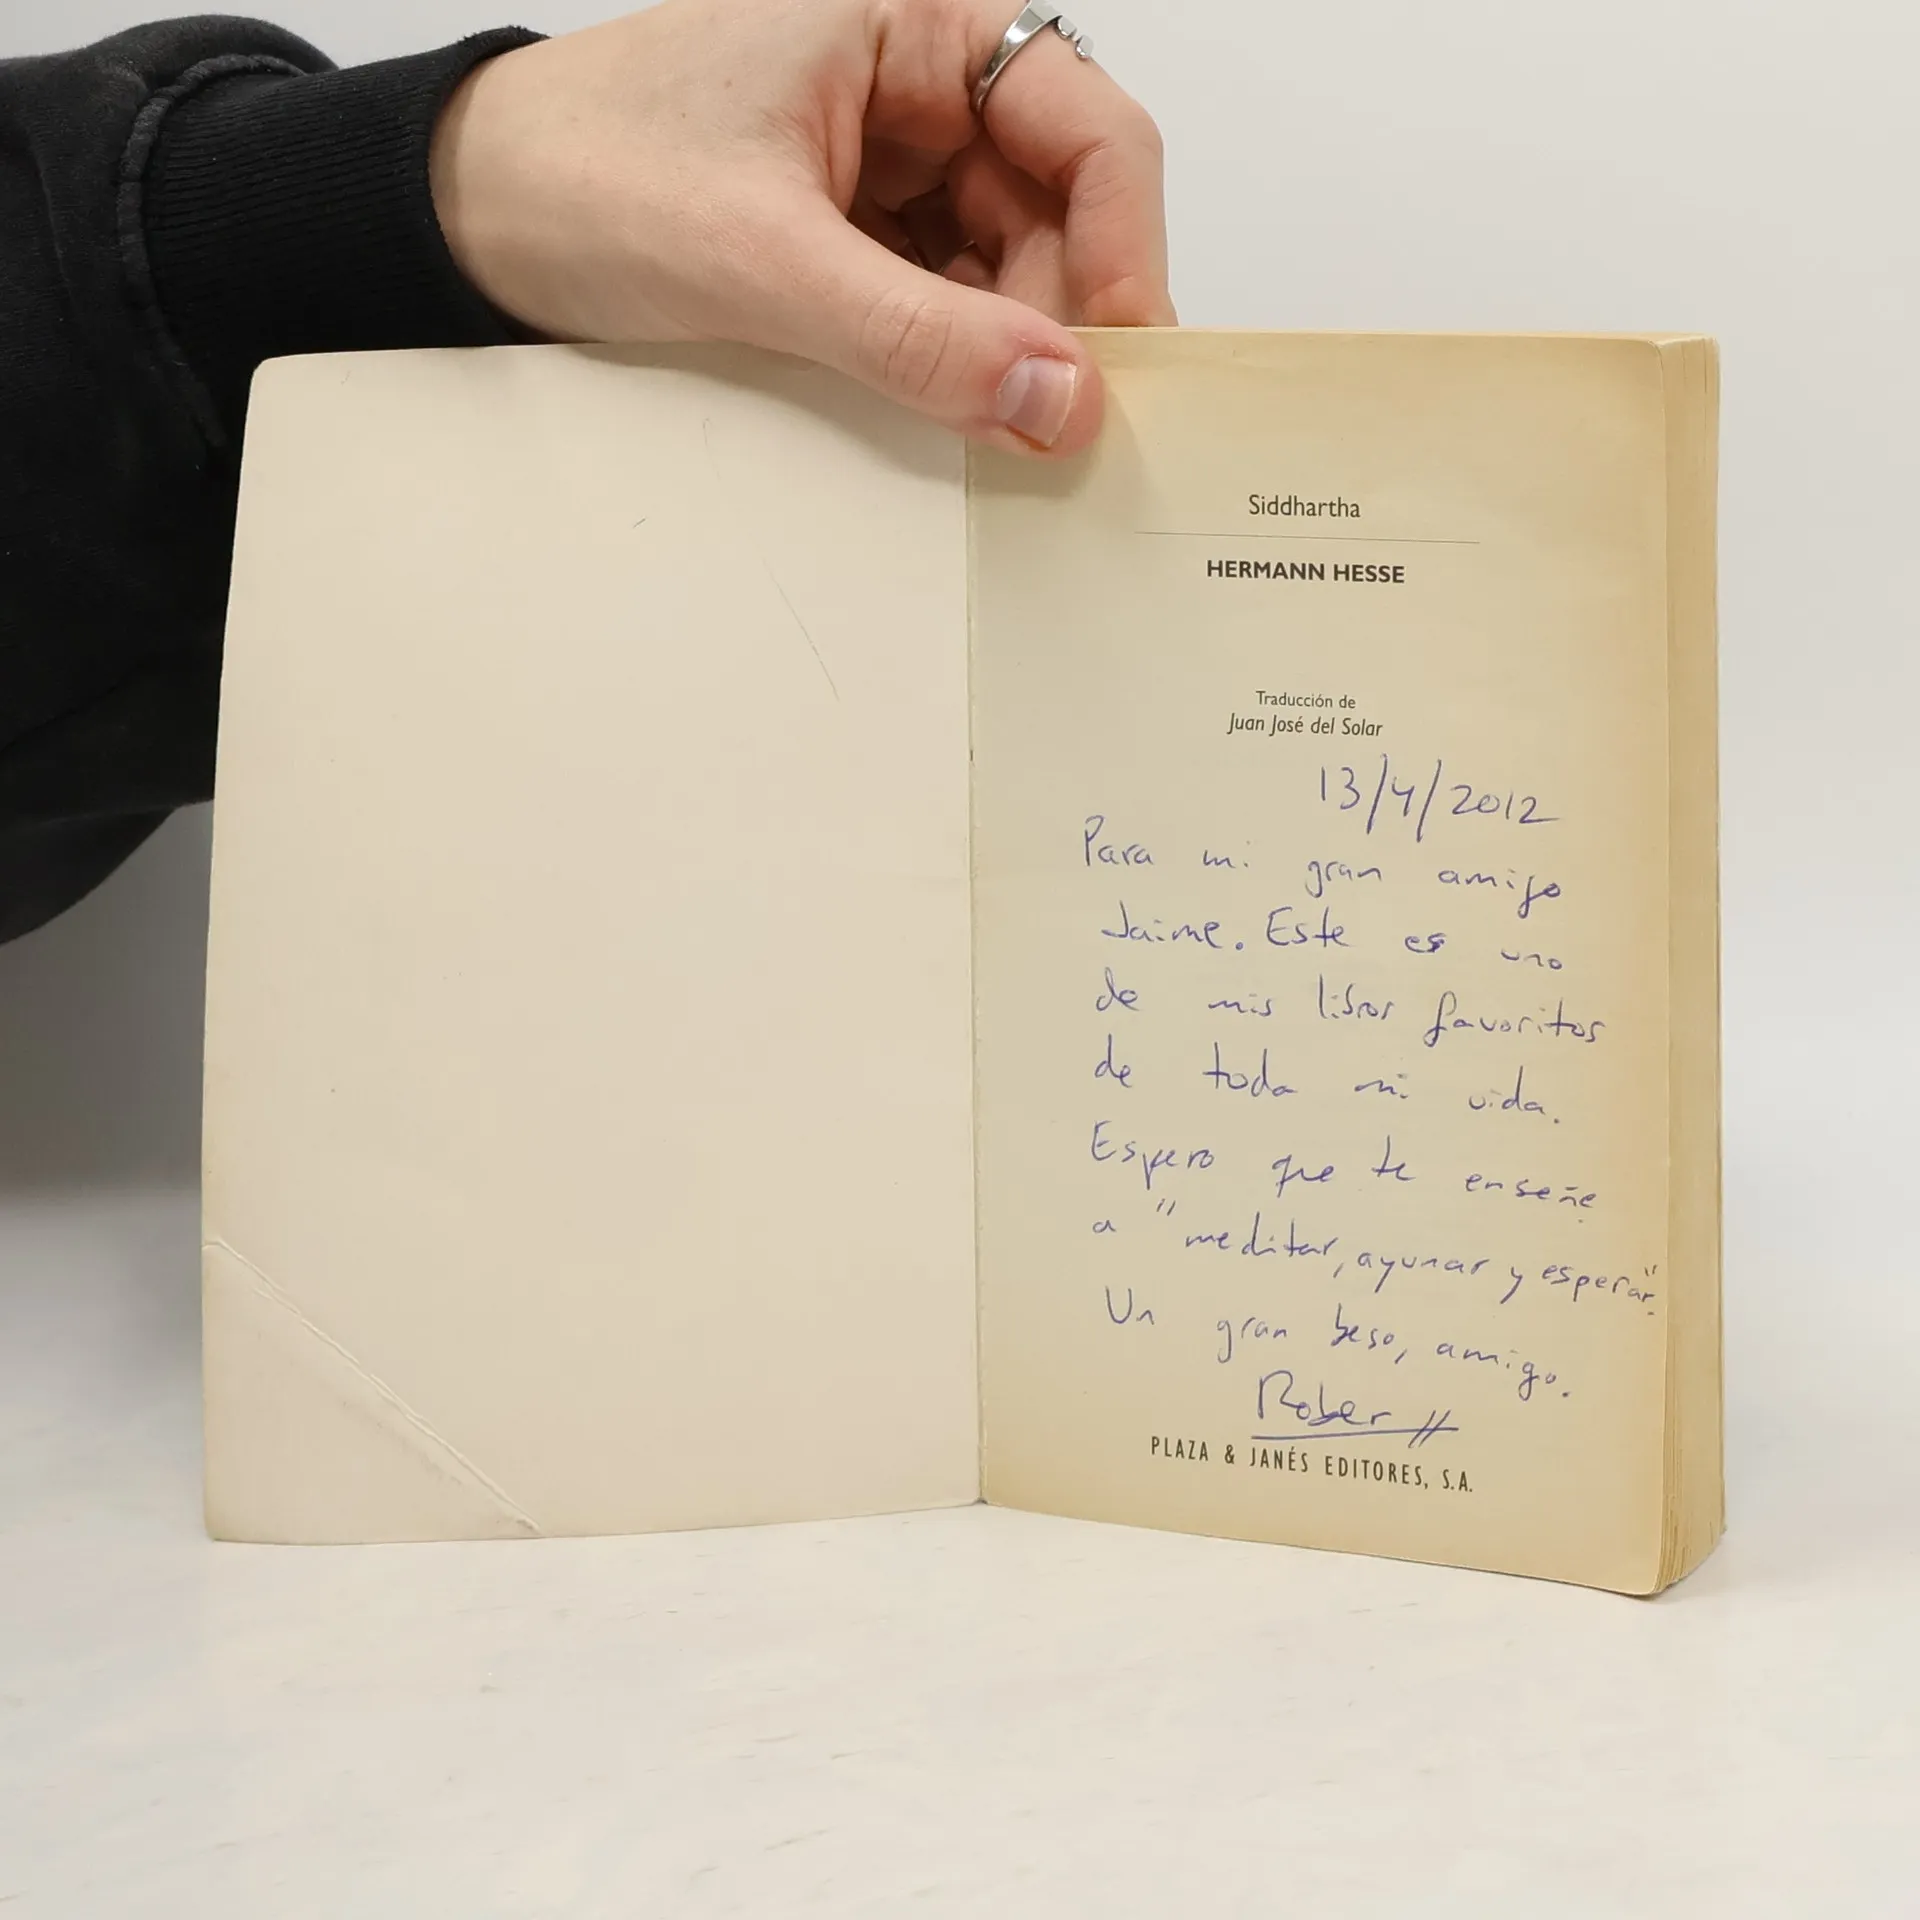 Siddhartha
HERMANN HESSE
Traducción de
Juan José del Solar
13/4/2012
Para mi gran amigo
Jaime. Este es uno
de mis libros favoritos
de toda mi vida.
Espero que te enseñe
a "meditar, ayunar y esperar".
Un gran beso, amigo.
Rober
PLAZA & JANÉS EDITORES, S.A.